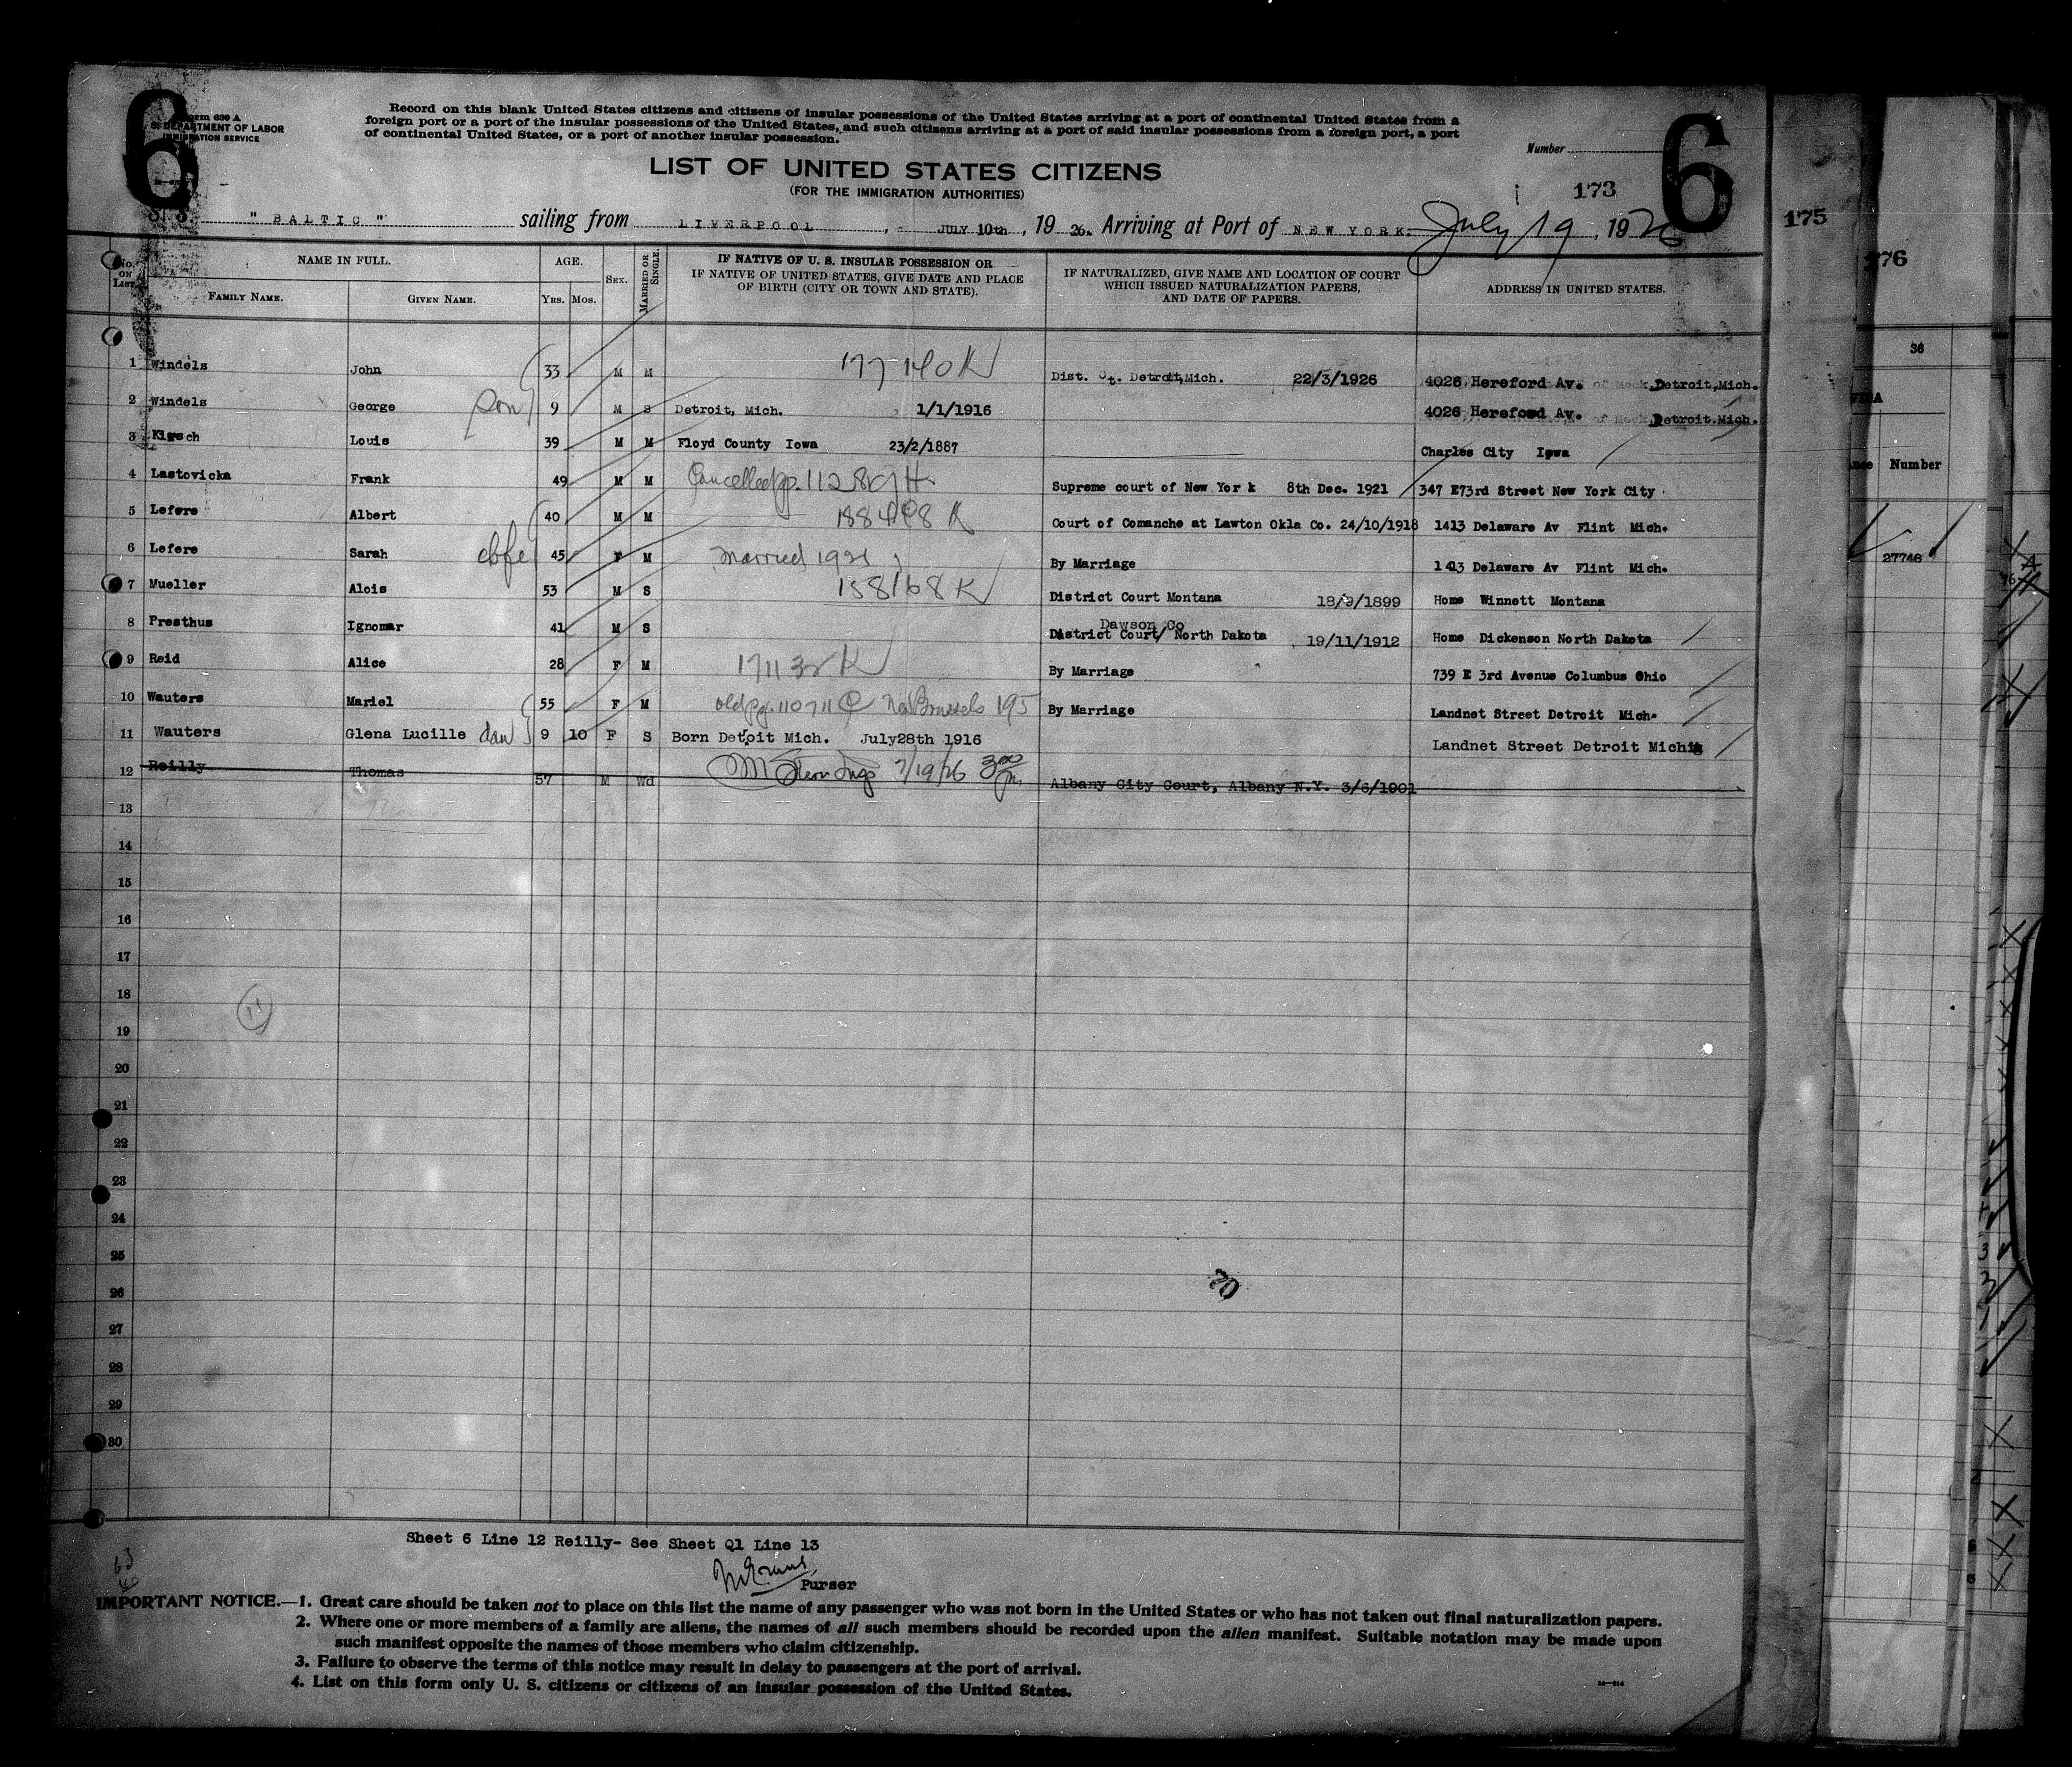 6
Form 630 A
U. S. DEPARTMENT OF LABOR
IMMIGRATION SERVICE
Record on this blank United States citizens and citizens of insular possessions of the United States arriving at a port of continental United States from a
foreign port or a port of the insular possessions of the United States, and such citizens arriving at a port of said insular possessions from a foreign port, a port
of continental United States, or a port of another insular possession.
Number
6
LIST OF UNITED STATES CITIZENS
(FOR THE IMMIGRATION AUTHORITIES)
173
175
176
S. S. "BALTIC" sailing from LIVERPOOL, - JULY 10th, 1926. Arriving at Port of NEW YORK. July 19, 1926
No. ON LIST. NAME IN FULL. AGE. SEX. MARRIED OR SINGLE. IF NATIVE OF U. S. INSULAR POSSESSION OR IF NATIVE OF UNITED STATES, GIVE DATE AND PLACE OF BIRTH (CITY OR TOWN AND STATE). IF NATURALIZED, GIVE NAME AND LOCATION OF COURT WHICH ISSUED NATURALIZATION PAPERS, AND DATE OF PAPERS. ADDRESS IN UNITED STATES.
FAMILY NAME. GIVEN NAME. YRS. MOS.
1 Windels John 33 M M 177140 K Dist. Ct. Detroit, Mich. 22/3/1926 4026 Hereford Av. Detroit, Mich.
2 Windels George son 9 M S Detroit, Mich. 1/1/1916 4026 Hereford Av. Detroit. Mich.
3 Kirsch Louis 39 M M Floyd County Iowa 23/2/1887 Charles City Iowa
4 Lastovicka Frank 49 M M Cancelled pp. Supreme court of New Yor k 8th Dec. 1921 347 E73rd Street New York City
5 Lefere Albert 40 M M Court of Comanche at Lawton Okla Co. 24/10/1918 1413 Delaware Av Flint Mich.
6 Lefere Sarah 45 F M Married 1921 By Marriage 1413 Delaware Av Flint Mich.
7 Mueller Alois 53 M S 158168 K District Court Montana 18/9/1899 Home Winnett Montana
8 Presthus Ignomar 41 M S District Court/ Dawson Co North Dakota 19/11/1912 Home Dickenson North Dakota
9 Reid Alice 28 F M By Marriage 739 E 3rd Avenue Columbus Ohio
10 Wauters Mariel 55 F M Brussels By Marriage Landnet Street Detroit Mich.
11 Wauters Glena Lucille dau 9 10 F S Born Detoit Mich. July28th 1916 Landnet Street Detroit Michig
12 Reilly Thomas 57 M Wd 7/19/26 Albany City Court, Albany N.Y. 3/6/1901
13
14
15
16
17
18
19
20
21
22
23
24
25
26
27
28
29
30
11
20
36
Number
27746
Sheet 6 Line 12 Reilly- See Sheet Q1 Line 13
Purser
IMPORTANT NOTICE.—1. Great care should be taken not to place on this list the name of any passenger who was not born in the United States or who has not taken out final naturalization papers.
2. Where one or more members of a family are aliens, the names of all such members should be recorded upon the alien manifest. Suitable notation may be made upon
such manifest opposite the names of those members who claim citizenship.
3. Failure to observe the terms of this notice may result in delay to passengers at the port of arrival.
4. List on this form only U. S. citizens or citizens of an insular possession of the United States.